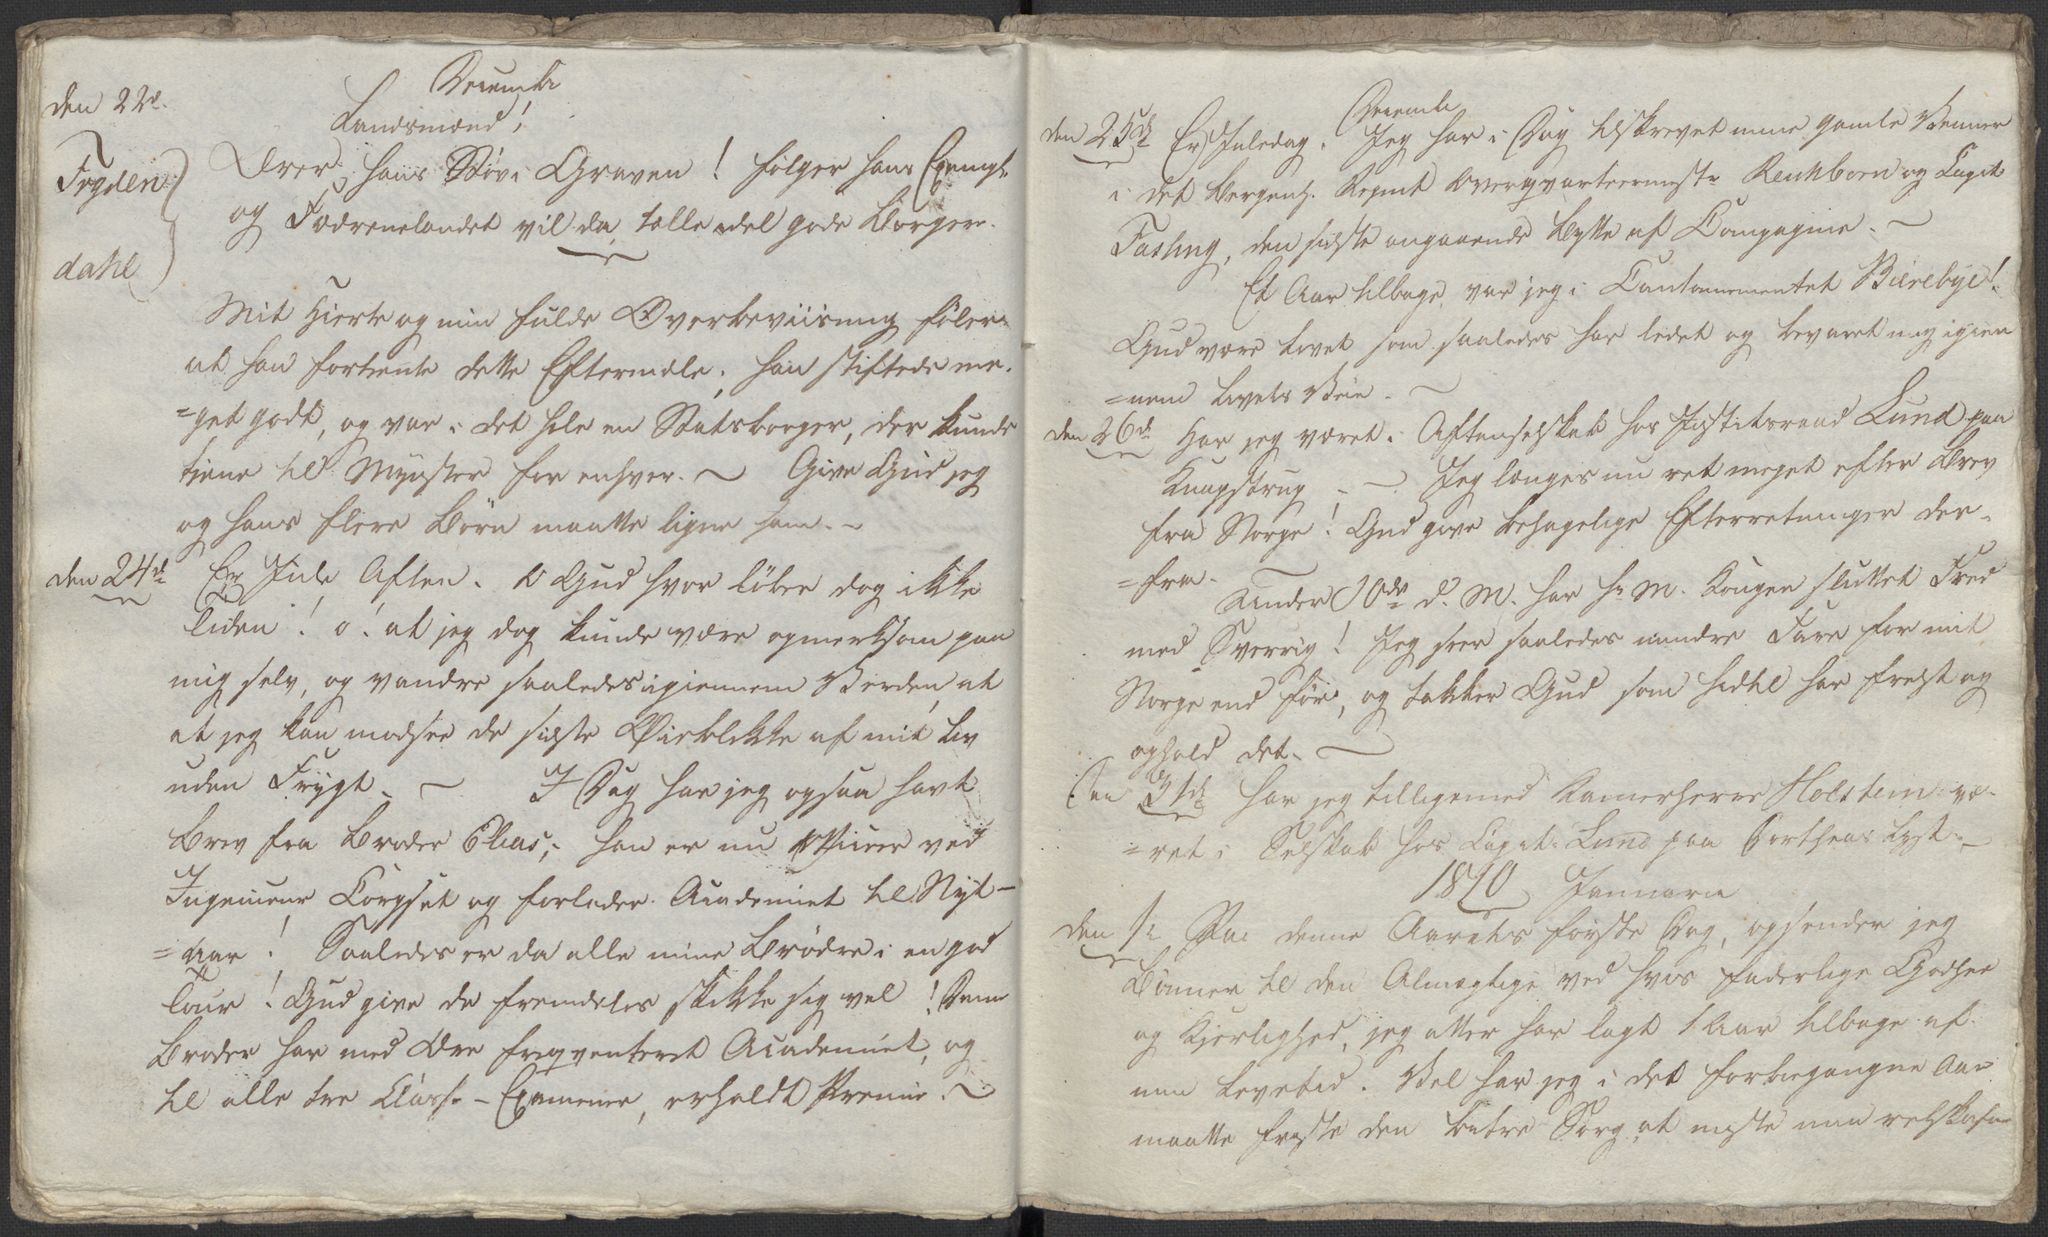 December
den 22d.
Landsmænd!
Frydendahl
Ærer hans Støv i Graven! følger hans Exempl:
og Fædrenelandet vil da tælle edel gode Borgere.
Mit Hierte og min fulde Overbeviisning føler
at han fortiente dette Eftermæle; han stiftede me-
=get godt, og var i det hele en Statsborger, der kunde
tiene til Mynster for enhver. ~ Give Gud jeg
og hans flere Børn maatte ligne ham. ~
den 24d Er Jule Aften. O Gud hvor løber dog ikke
Tiden! o! at jeg dog kunde være opmerksom paa
mig selv, og vandre saaledes igiennem Verden, at
at jeg kan modsee de sidste Øieblikke af mit Liv
uden Frygt. ~ I Dag har jeg ogsaa havt
Brev fra Broder Elias; han er nu Officier ved
Ingenieur Corpset og forlader Academiet til Nyt-
=aar! Saaledes er da alle mine Brødre i en god
Tour! Gud give de fremdeles skikke sig vel! Denne
Broder har med Ære freqventeret Academiet, og
til alle tre Classe-Examener, erholdt Præmie. ~
December
den 25d Er Juledag. Jeg har i Dag tilskrevet mine gamle Venner
i det Bergenh. Regmt Overqvarteermestr Renkborn og Capit
Fasting, den sidste angaaende Bytte af Compagnie. ~
Et Aar tilbage var jeg i Cantonnementet Bierebye!
Gud være lovet som saaledes har ledet og bevaret mig igien
=nem Livets Veie. ~
den 26d Har jeg været i Aftenselskab hos Justitsraad Lund paa
Knapstrup. ~ Jeg længes nu ret meget efter Brev
fra Norge! Gud give behagelige Efterretninger der-
=fra.
Under 10de d. M. har H. M. Kongen sluttet Fred
med Sverrig! Jeg seer saaledes mindre Fare for mit
Norge end før, og takker Gud som hidtil har frelst og
ophold det. ~
Den 31d Har jeg tilligemed Kamerherre Holstein væ-
=ret i Selskab hos Capit: Lund paa Dortheas Lyst. ~
1810 Januarii
den 1. Paa denne Aarets første Dag, opsender jeg
Bønner til den Almægtige ved hvis faderlige Godhed
og Kjerlighed, jeg atter har lagt 1 Aar tilbage af
min Levetid. Vel har jeg i det forbiegangne Aar
maatte friste den bitre Sorg at miste min retskafne